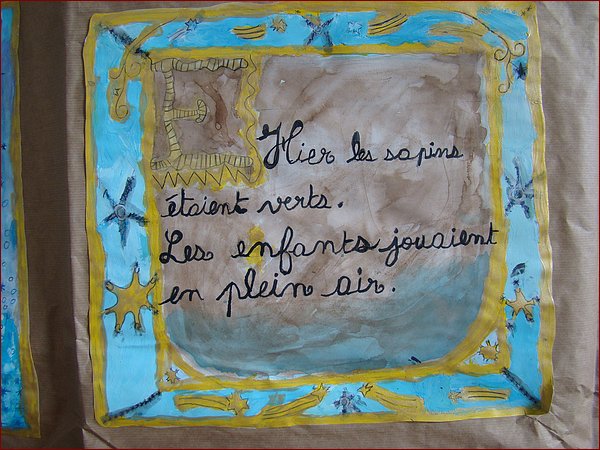 E
Hier les sapins
étaient verts.
Les enfants jouaient
en plein air.